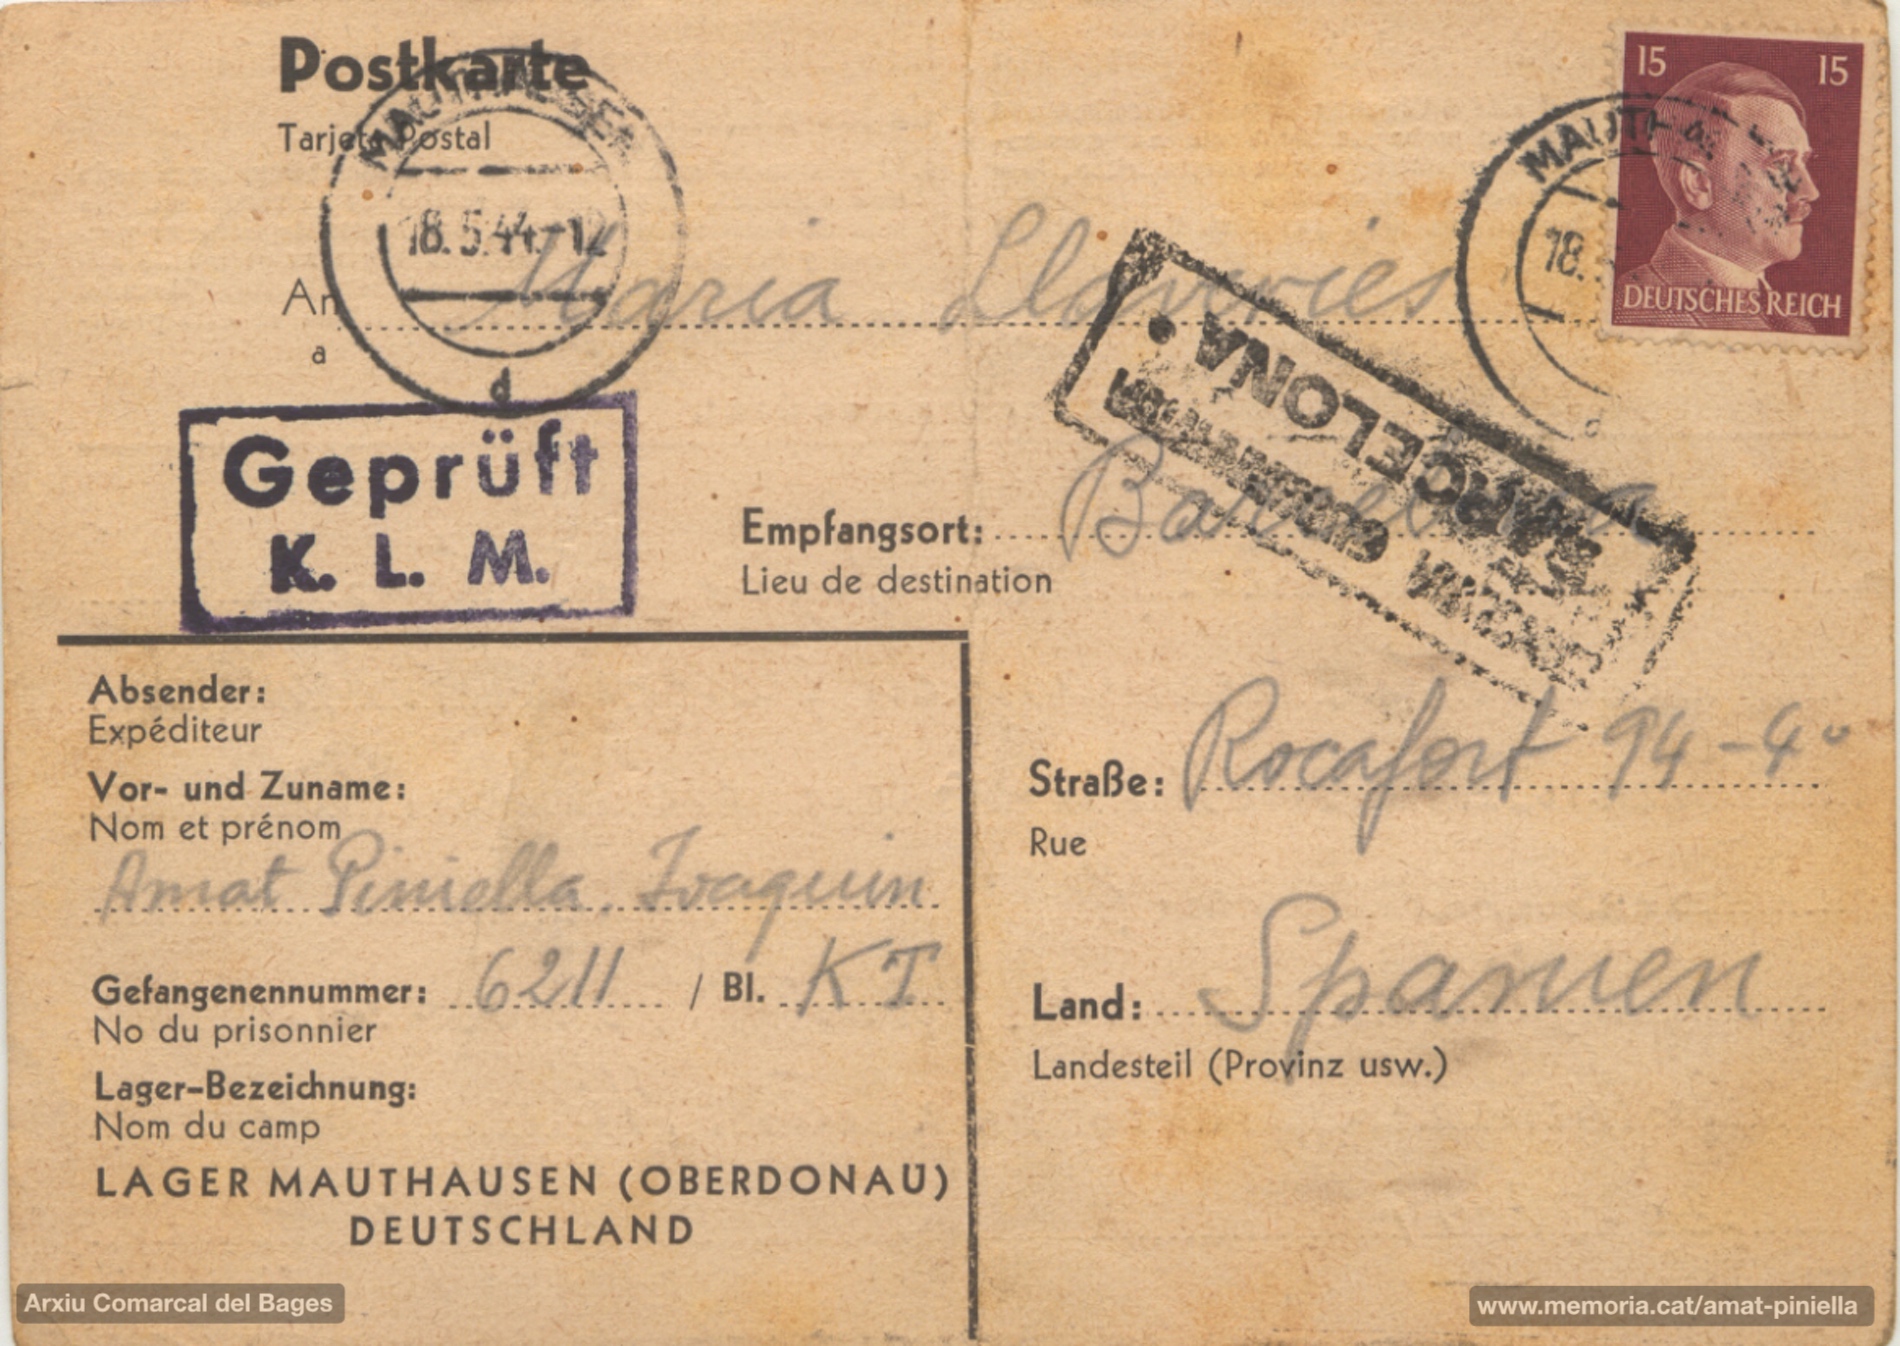 Postkarte
Tarjeta Postal
MAUTHAUSEN
18.5.44.-12
d
15 15
DEUTSCHES REICH
MAUTHAUSEN
18.
An Maria Llaveries
a
BARCELONA
CENSURA GUBERNATIVA
Geprüft
K. L. M.
Empfangsort: Barcelona
Lieu de destination
Absender:
Expéditeur
Vor- und Zuname:
Nom et prénom
Amat Piniella, Joaquin
Gefangenennummer: 6211 / Bl. KT
No du prisonnier
Lager-Bezeichnung:
Nom du camp
LAGER MAUTHAUSEN (OBERDONAU)
DEUTSCHLAND
Straße: Rocafort 94-4º
Rue
Land: Spanien
Landesteil (Provinz usw.)
Arxiu Comarcal del Bages
www.memoria.cat/amat-piniella